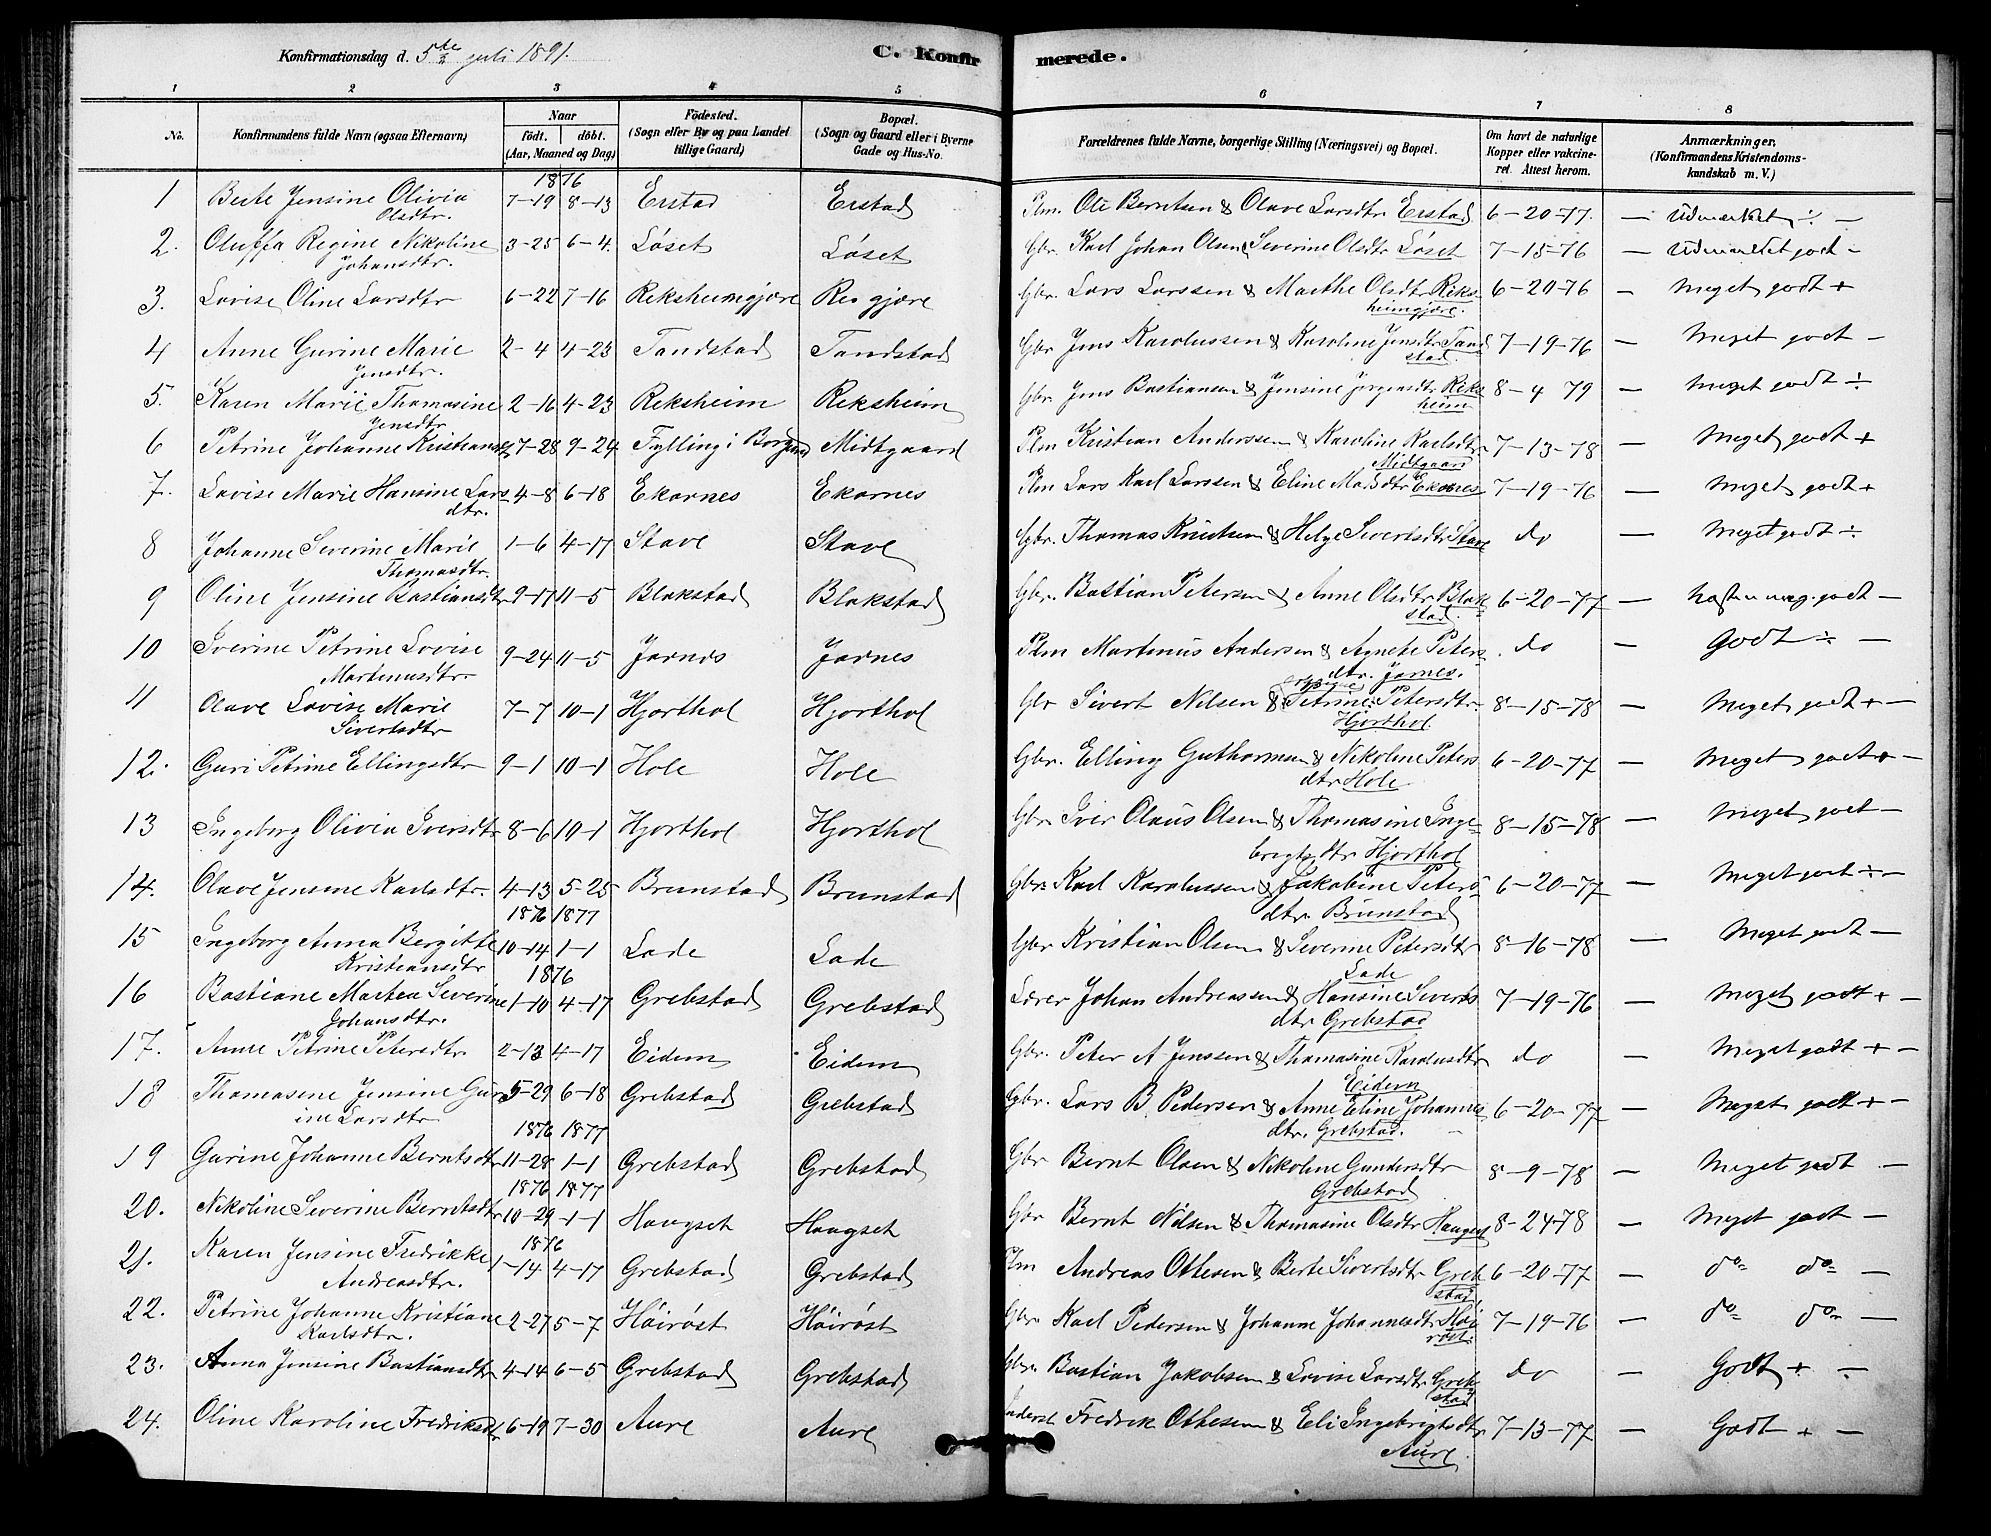 Konfirmationsdag d. 5te juli 1891.
C. Konfirmerede.
1 2 3 4 5 6 7 8
No.
Konfirmandens fulde Navn (ogsaa Efternavn)
Naar
födt. döbt.
(Aar, Maaned og Dag)
Födested.
(Sogn eller By og paa Landet
tillige Gaard)
Bopæl.
(Sogn og Gaard eller i Byerne
Gade og Hus-No.
Forældrenes fulde Navne, borgerlige Stilling (Næringsvei) og Bopæl.
Om havt de naturlige
Kopper eller vakcine-
ret. Attest herom.
Anmærkninger,
(Konfirmandens Kristendoms-
kundskab m. V.)
1876
1 Berte Jensine Olivia 7-19 8-13 Erstad Erstad Plm. Ole Berntsen & Olave Larsdtr Erstad 6-20-77. — Udmærket ÷ —
Olsdtr.
2. Oluffa Regine Nikoline 3-25 6-4 Løset Løset Gbr. Karl Johan Olsen & Severine Olsdtr Løset 7-15-76 — Udmærket godt —
Johansdtr.
3. Lovise Oline Larsdtr 6-22 7-16 Reksheimgjære Rei gjære Gbr. Lars Larssen & Marthe Olsdtr Reks- 6-20-76 — Meget godt +
heimgjære.
4 Anne Gurine Marie 2-4 4-23 Tandstad Tandstad Gbr Jens Karolussen & Karoline Jensdtr Tand 7-19-76 — Meget godt —
Jensdtr. stad.
5. Karen Marie Thomasine 2-16 4-23 Reksheim Reksheim Gbr. Jens Bastiansen & Jensine Jørgensdtr Reks 8-4 79 — Meget godt ÷
Jensdtr heim
6 Petrine Johanne Kristiansdtr 7-28 9-24 Fylling i Borgund Midtgaard Plm Kristian Anderssen & Karoline Karlsdtr 7-13-78 — Meget godt +
Midtgaard
7. Lovise Marie Hansine Lars 4-8 6-18 Ekornes Ekornes Plm Lars Karl Larssen & Eline Matsdtr Ekornes 7-19-76 — Meget godt +
dtr.
8 Johanne Severine Marie 1-6 4-17 Stave Stave Gbr. Thomas Knudsen & Helge Sivertsdtr Stave do — Meget godt ÷
Thomasdtr.
9 Oline Jensine Bastiansdtr 9-17 11-5 Blakstad Blakstad Gbr. Bastian Petersen & Anne Olsdtr Blak 6-20-77 — næsten meg. godt —
stad.
10 Iverine Petrine Lovise 9-24 11-5 Jarnes Jarnes Plm Martinus Andersen & Agnete Peters- do — Godt ÷ —
Martinusdtr. dtr. Jarnes.
11 Olave Lovise Marie 7-7 10-1 Hjorthol Hjorthol Gbr Sivert Nilsen & Petrine Petersdtr. 8-15-78 — Meget godt + —
Sivertsdtr Hjorthol
12. Guri Petrine Ellingsdtr 9-1 10-1 Hole Hole Gbr. Elling Guthormsen & Nikoline Peters 6-20-77 — Meget godt + —
dtr Hole
13 Ingeborg Olivia Iversdtr 8-6 10-1 Hjorthol Hjorthol Gbr Iver Olaus Olsen & Thomasine Inge- 8-15-78 — Meget godt —
brigtsdtr Hjorthol
14. Olave Jensine Karlsdtr. 4-13 5-25 Brunstad Brunstad Gbr. Karl Karolussen & Jakobine Peters- 6-20-77 — Meget godt ÷ —
dtr. Brunstad
1876 1877
15 Ingeborg Anna Bergitte 10-14 1-1 Lade Lade Gbr Kristian Olsen & Severine Petersdtr 8-16-78 — Meget godt —
Kristiansdtr Lade
1876
16 Bastiane Martea Severine 1-10 4-17 Grebstad Grebstad Lærer Johan Andreassen & Hansine Siverts 7-19-76 — Meget godt + —
Johansdtr. dtr Grebstad
17. Anne Petrine Petersdtr. 2-13 4-17 Eidem Eidem Gbr. Peter A Jenssen & Thomasine Karolusdtr do — Meget godt + —
Eidem
18 Thomasene Jensine Gur 5-29 6-18 Grebstad Grebstad Gbr. Lars B. Pedersen & Anne Eline Johannes 6-20-77 — Meget godt + —
ine Larsdtr dtr. Grebstad.
1876 1877
19 Gurine Johanne Berntsdtr 11-28 1-1 Grebstad Grebstad Gbr Bernt Olsen & Nikoline Gundersdtr 8-9-78 — Meget godt —
Grebstad
1876 1877
20. Nikoline Severine Berntsdtr 10-29 1-1 Haugset Haugset Gbr Bernt Nilsen & Thomasine Olsdtr Haugset 8-24-78 — Meget godt —
1876
21. Karen Jensine Fredrikke 1-14 4-17 Grebstad Grebstad Plm Andreas Ottesen & Berte Sivertsdtr Greb 6-20-77 — do do —
Andreasdtr. stad
22. Petrine Johanne Kristiane 2-27 5-7 Höiröst Höiröst Gbr Karl Pedersen & Johanne Johannesdtr Höi 7-19-76 — do do —
Karlsdtr. röst.
23. Anna Jensine Bastiansdtr 4-14 6-5 Grebstad Grebstad Gbr. Bastian Jakobsen & Lovise Larsdtr Greb do — Godt + —
stad
24. Oline Karoline Fredriksdtr 6-19 7-30 Aure Aure Inderst Fredrik Ottesen & Eli Ingebrigtsdtr 7-13-77 — Godt + —
Aure.